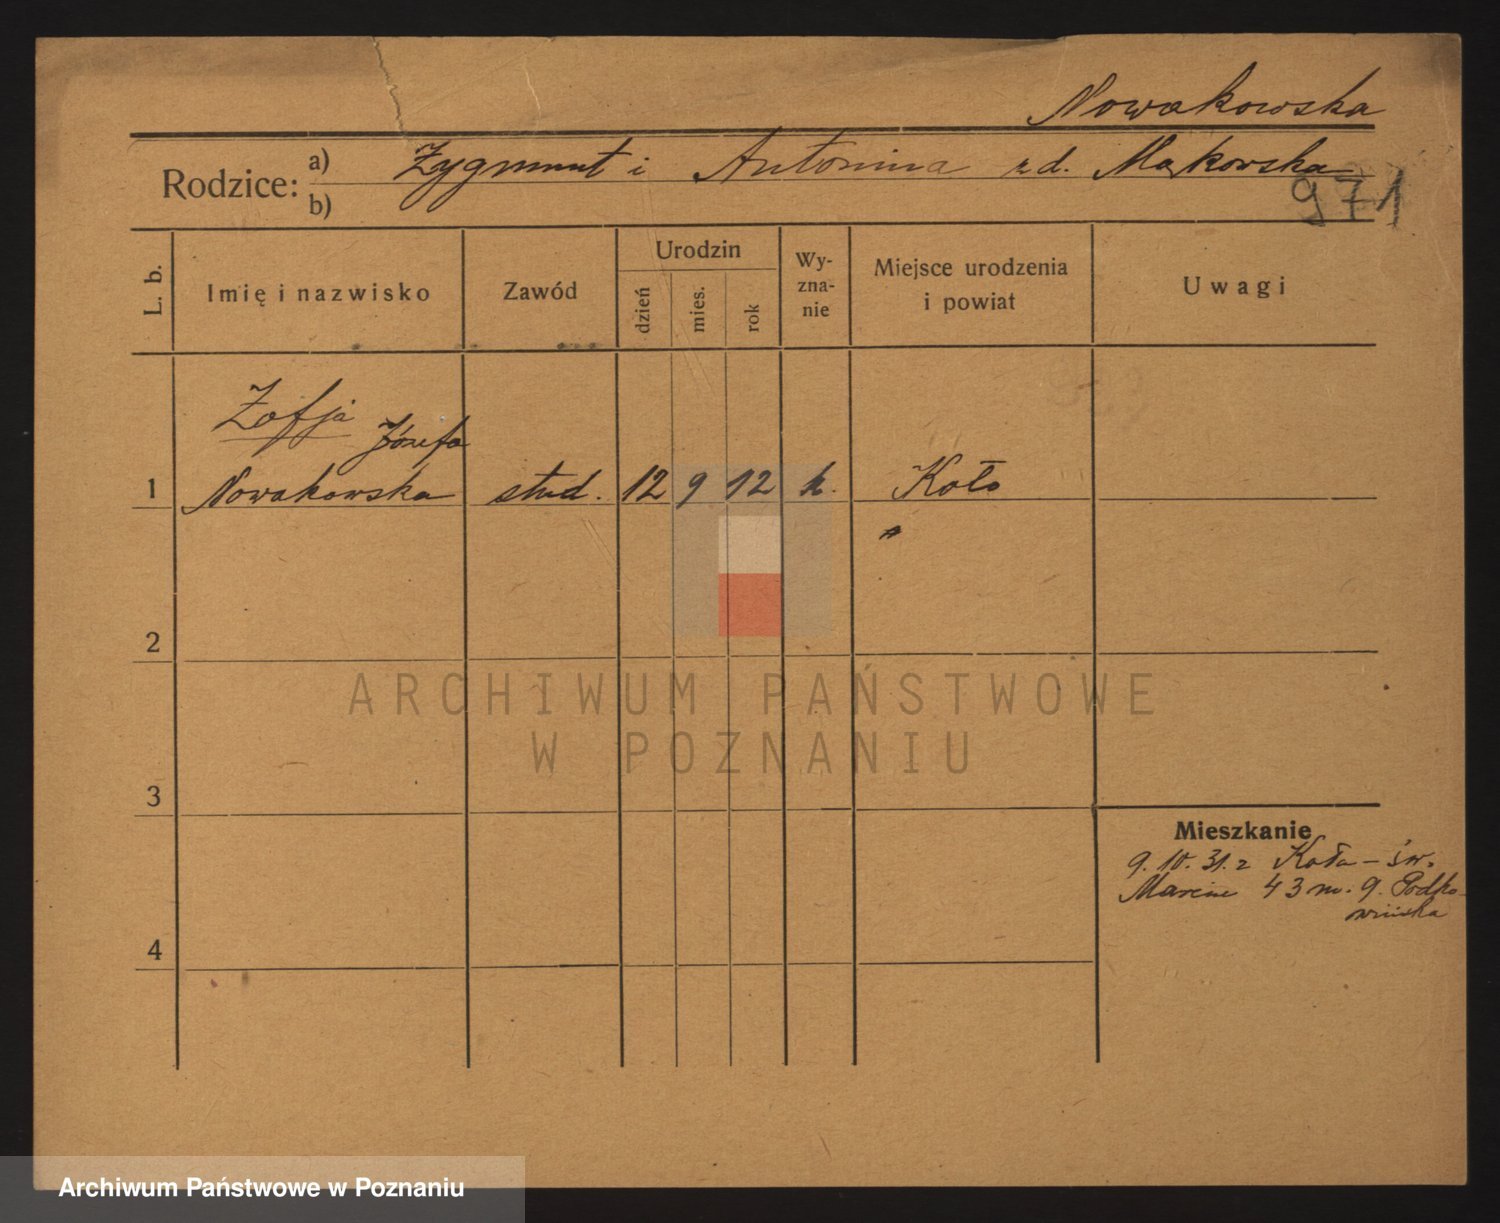 Nowakowska
Rodzice: a) Zygmunt i Antonina zd. Makowska
b)
971
L. b.
Imię i nazwisko
Zawód
Urodzin
dzień
mies.
rok
Wy-
zna-
nie
Miejsce urodzenia
i powiat
Uwagi
Zofja
Józefa
1 Nowakowska stud. 12 9 12 k. Koło
"
2
3
4
Mieszkanie
9.10.31. z Koła - św.
Marcin 43 m. 9. Podko-
wińska
ARCHIWUM PAŃSTWOWE
W POZNANIU
Archiwum Państwowe w Poznaniu